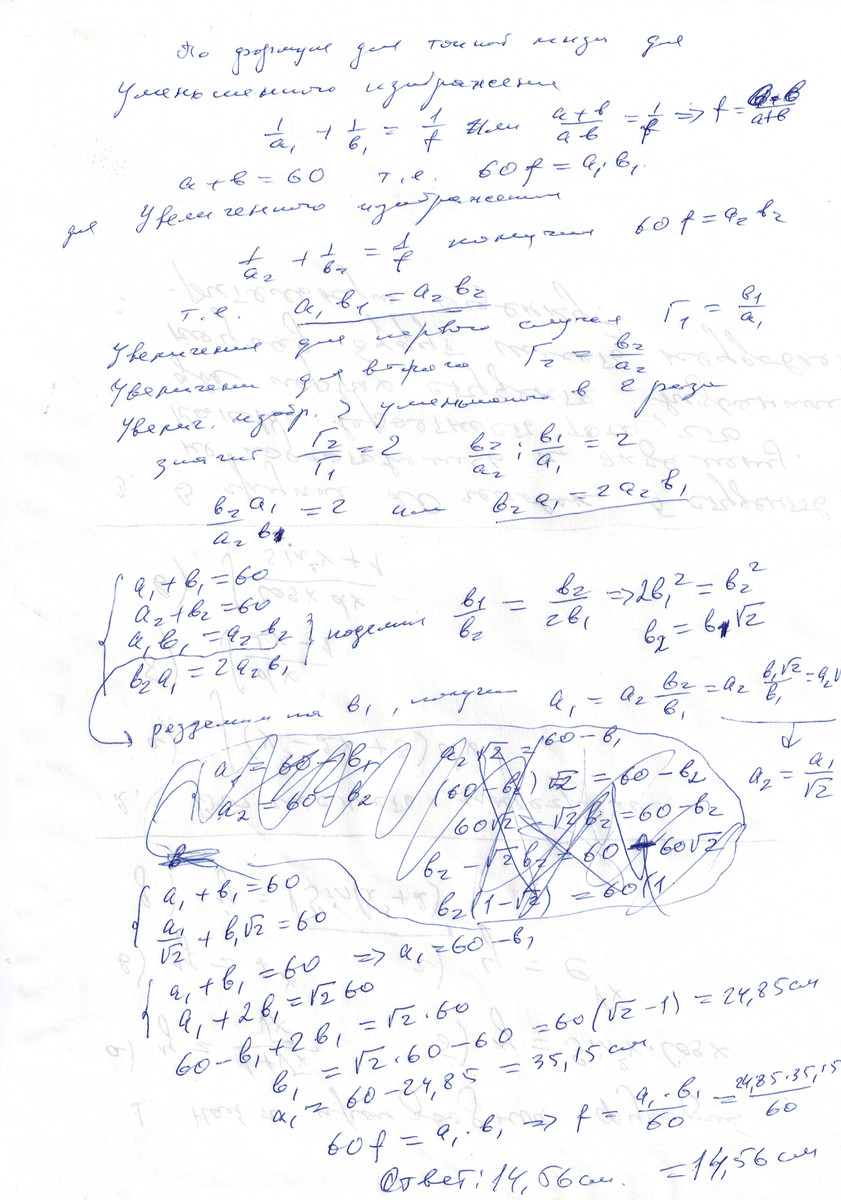 По формуле для тонкой линзы для
Уменьшенного изображения
1/a₁ + 1/b₁ = 1/f или (a+b)/(ab) = 1/f ⇒ f = ab/(a+b)
a+b=60 т.е. 60f=a₁b₁.
для Увеличенного изображения
1/a₂ + 1/b₂ = 1/f получим 60f=a₂b₂
т.е. a₁b₁=a₂b₂
Увеличения для первого случая Г₁ = b₁/a₁
Увеличени для второго Г₂ = b₂/a₂
Увелич. изобр. > уменьшеного в 2 раза
значит Г₂/Г₁ = 2 b₂/a₂ : b₁/a₁ = 2
b₂a₁/(a₂b₁) = 2 или b₂a₁=2a₂b₁
a₁+b₁=60
a₂+b₂=60
a₁b₁=a₂b₂ } поделим b₁/b₂ = b₂/(2b₁) ⇒ 2b₁²=b₂²
b₂a₁=2a₂b₁ b₂=b₁√2
разделим на b₁, получим a₁=a₂ b₂/b₁ = a₂ b₁√2/b₁ = a₂√
a₂ = a₁/√2
a₁=60-b₁ a₂√2=60-b₁
a₂=60-b₂ (60-b₂)√2=60-b₂
60√2-√2b₂=60-b₂
b₂-√2b₂=60-60√2
b₂(1-√2)=60(1
a₁+b₁=60
a₁/√2+b₁√2=60
a₁+b₁=60 ⇒ a₁=60-b₁
a₁+2b₁=√2 60
60-b₁+2b₁=√2·60
b₁=√2·60-60=60(√2-1)=24,85см
a₁=60-24,85=35,15см
60f=a₁·b₁ ⇒ f = a₁·b₁/60 = 24,85·35,15/60
Ответ: 14,56см. =14,56см